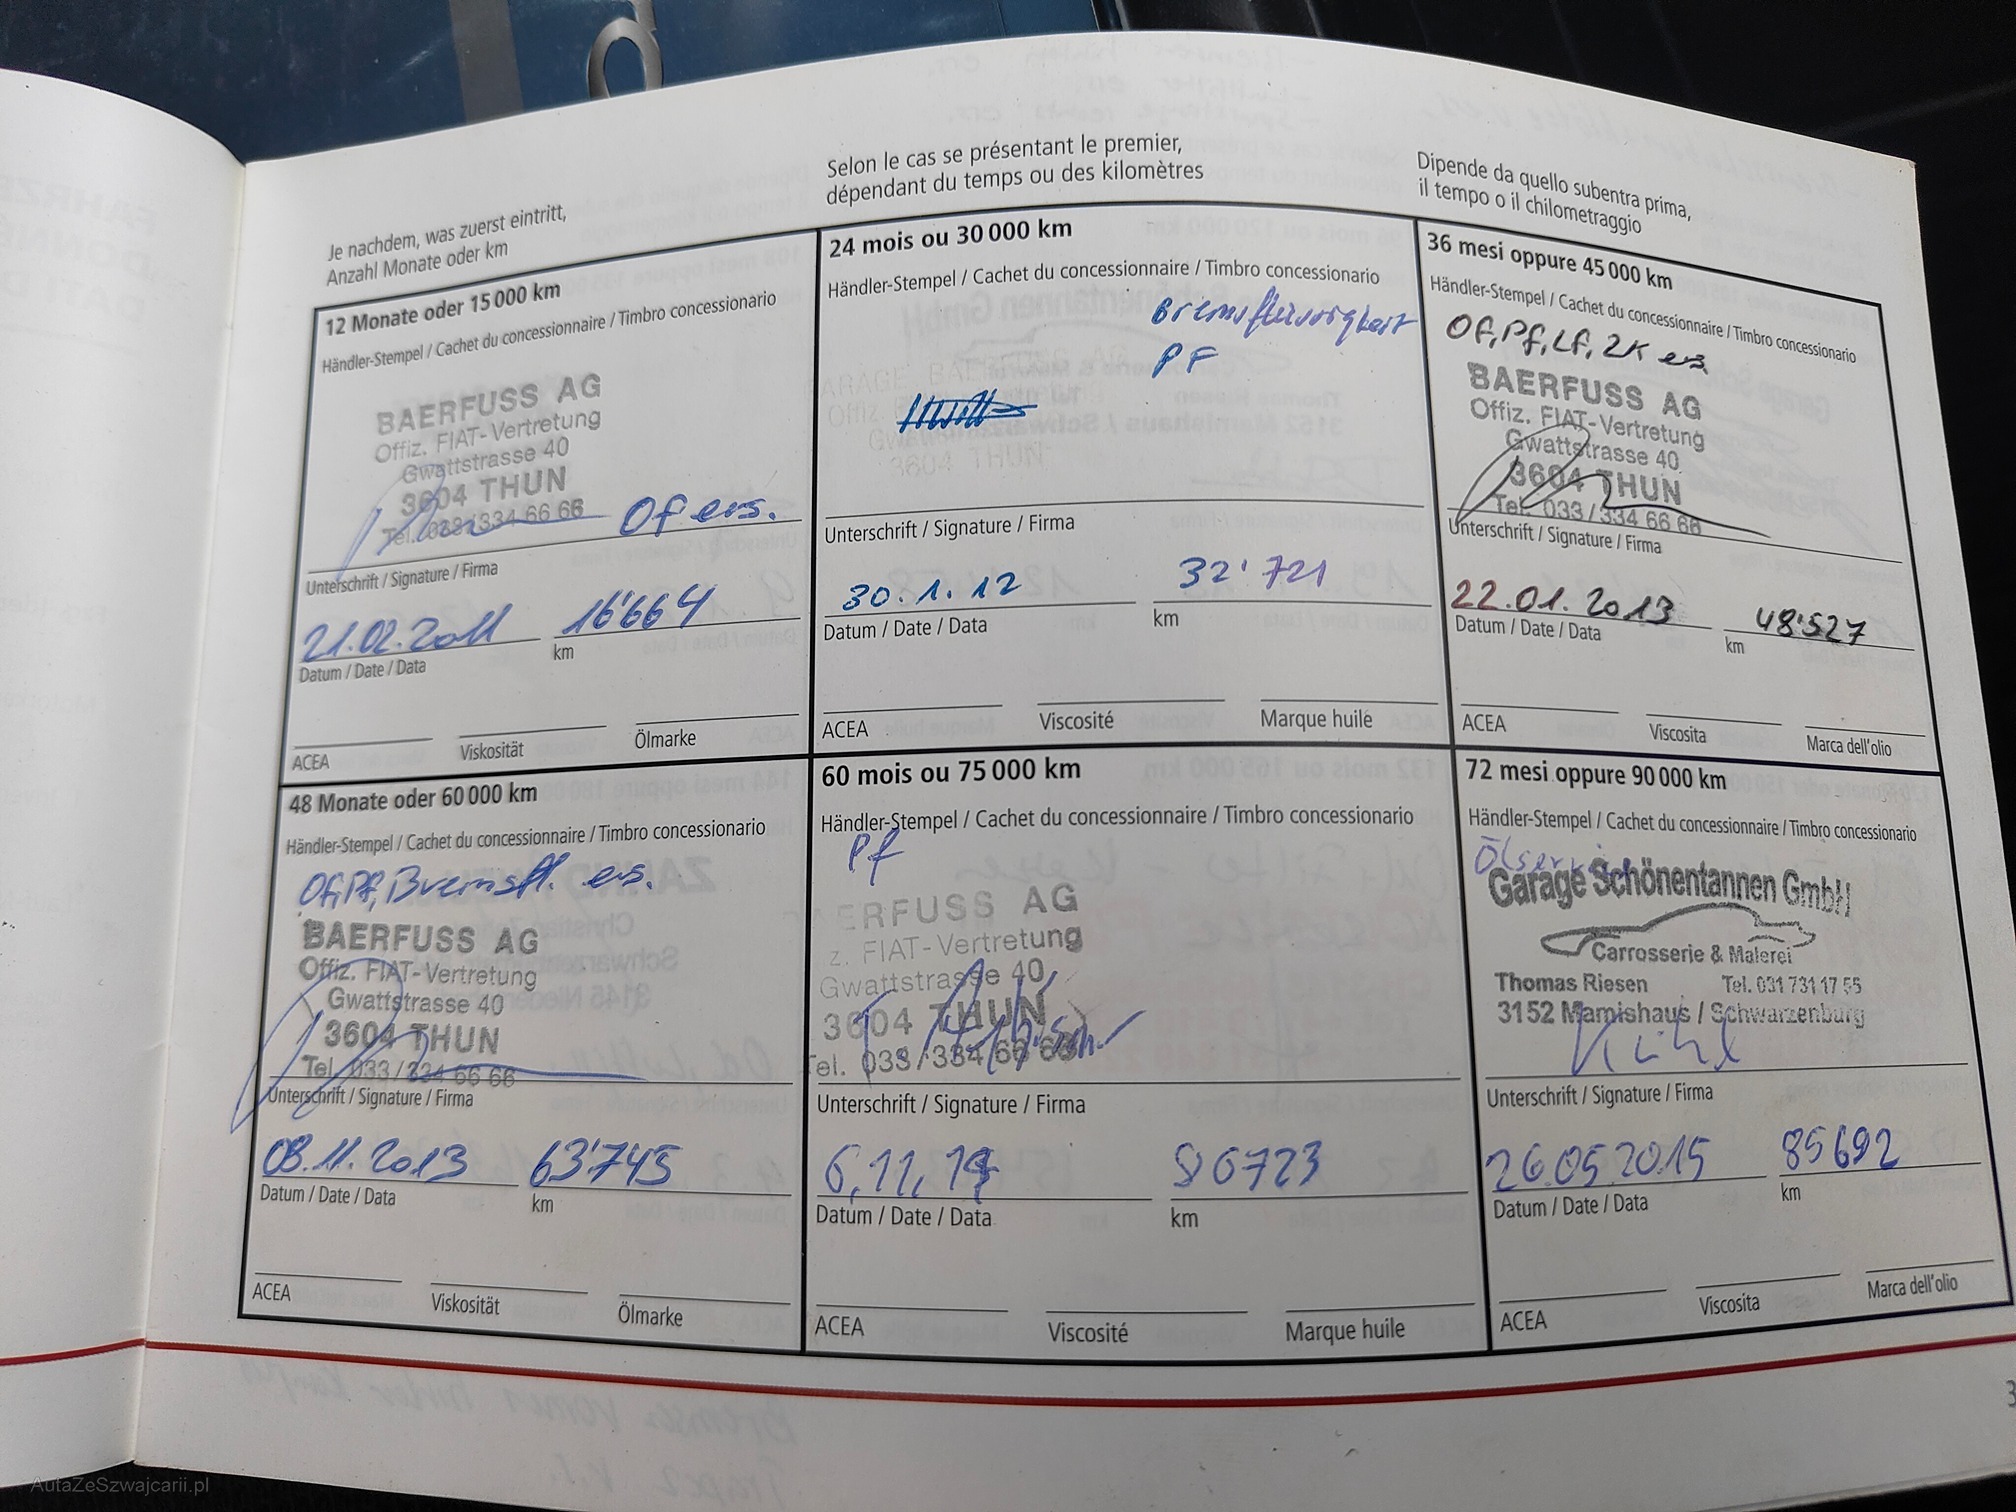 Je nachdem, was zuerst eintritt,
Anzahl Monate oder km
Selon le cas se présentant le premier,
dépendant du temps ou des kilomètres
Dipende da quello subentra prima,
il tempo o il chilometraggio
12 Monate oder 15 000 km
Händler-Stempel / Cachet du concessionnaire / Timbro concessionario
BAERFUSS AG
Offiz. FIAT-Vertretung
Gwattstrasse 40
3604 THUN
Tel. 033/334 66 66
Of ers.
Unterschrift / Signature / Firma
21.02.2011 16'664
Datum / Date / Data km
ACEA Viskosität Ölmarke
24 mois ou 30 000 km
Händler-Stempel / Cachet du concessionnaire / Timbro concessionario
Bremsflüssigkeit
PF
GARAGE BAERFUSS AG
3604 THUN
Unterschrift / Signature / Firma
30.1.12 32'721
Datum / Date / Data km
ACEA Viscosité Marque huile
36 mesi oppure 45 000 km
Händler-Stempel / Cachet du concessionnaire / Timbro concessionario
Of, Pf, Lf, ZK ers
BAERFUSS AG
Offiz. FIAT-Vertretung
Gwattstrasse 40
3604 THUN
Tel. 033/334 66 66
Unterschrift / Signature / Firma
22.01.2013 48'527
Datum / Date / Data km
ACEA Viscosita Marca dell'olio
48 Monate oder 60 000 km
Händler-Stempel / Cachet du concessionnaire / Timbro concessionario
Of, Pf, Bremsfl. ers.
BAERFUSS AG
Offiz. FIAT-Vertretung
Gwattstrasse 40
3604 THUN
Tel. 033/334 66 66
Unterschrift / Signature / Firma
08.11.2013 63'745
Datum / Date / Data km
ACEA Viskosität Ölmarke
60 mois ou 75 000 km
Händler-Stempel / Cachet du concessionnaire / Timbro concessionario
Pf
ERFUSS AG
z. FIAT-Vertretung
Gwattstrasse 40
3604 THUN
Tel. 033/334 66 66
Unterschrift / Signature / Firma
6.11.14 86723
Datum / Date / Data km
ACEA Viscosité Marque huile
72 mesi oppure 90 000 km
Händler-Stempel / Cachet du concessionnaire / Timbro concessionario
Ölservice
Garage Schönentannen GmbH
Carrosserie & Malerei
Thomas Riesen Tel. 031 731 17 55
3152 Mamishaus / Schwarzenburg
Unterschrift / Signature / Firma
26.05.2015 85692
Datum / Date / Data km
ACEA Viscosita Marca dell'olio
3
AutaZeSzwajcarii.pl